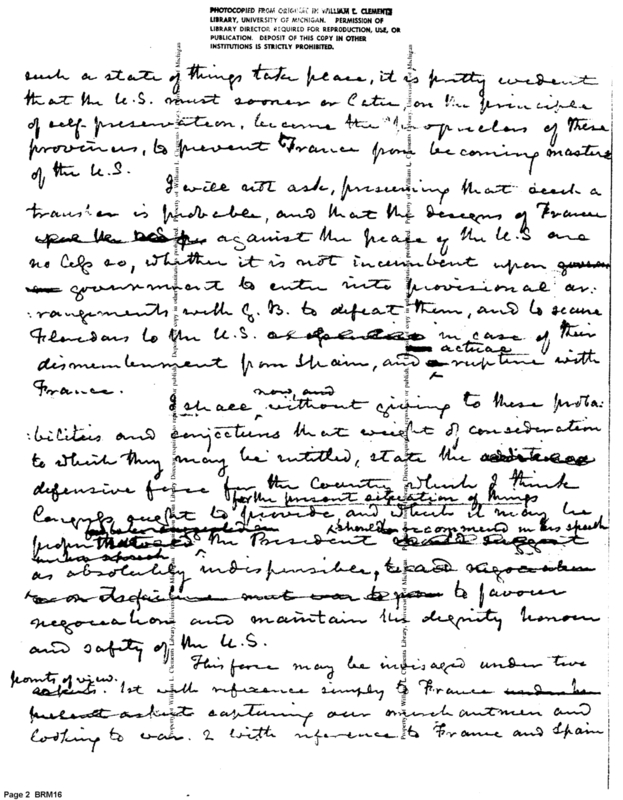 PHOTOCOPIED FROM ORIGINAL IN WILLIAM L. CLEMENTS
LIBRARY, UNIVERSITY OF MICHIGAN. PERMISSION OF
LIBRARY DIRECTOR REQUIRED FOR REPRODUCTION, USE, OR
PUBLICATION. DEPOSIT OF THIS COPY IN OTHER
INSTITUTIONS IS STRICTLY PROHIBITED.
such a state of things take place, it is pretty evident
that the U.S. must sooner or later, on the principle
of self preservation, become the propriators of these
provinces, to prevent France from becoming master
of the U.S.
I will not ask, presuming that such a
transfer is probable, and that the designs of France
against the peace of the U.S are
no less so, whether it is not incumbent upon
government to enter into provisional ar-
:rangements with G. B. to defeat them, and to secure
Floridas to the U.S. in case of their
actual
dismemberment from Spain, and a rupture with
France.
now, and
I shall without giving to these proba:
:bilities and conjectures that weight of consideration
to which they may be entitled, state the
defensive force for the Country which I think
for the present situation of things
Congress ought to provide and which it may be
should recommend in his speech
proper the President
as absolutely indispensible, to favour
negociation and maintain the dignity honour
and safety of the U.S.
This force may be invisaged under two
points of view.
1st with reference simply to France
capturing our merchantmen and
looking to war. 2 with reference to France and Spain
Page 2 BRM16